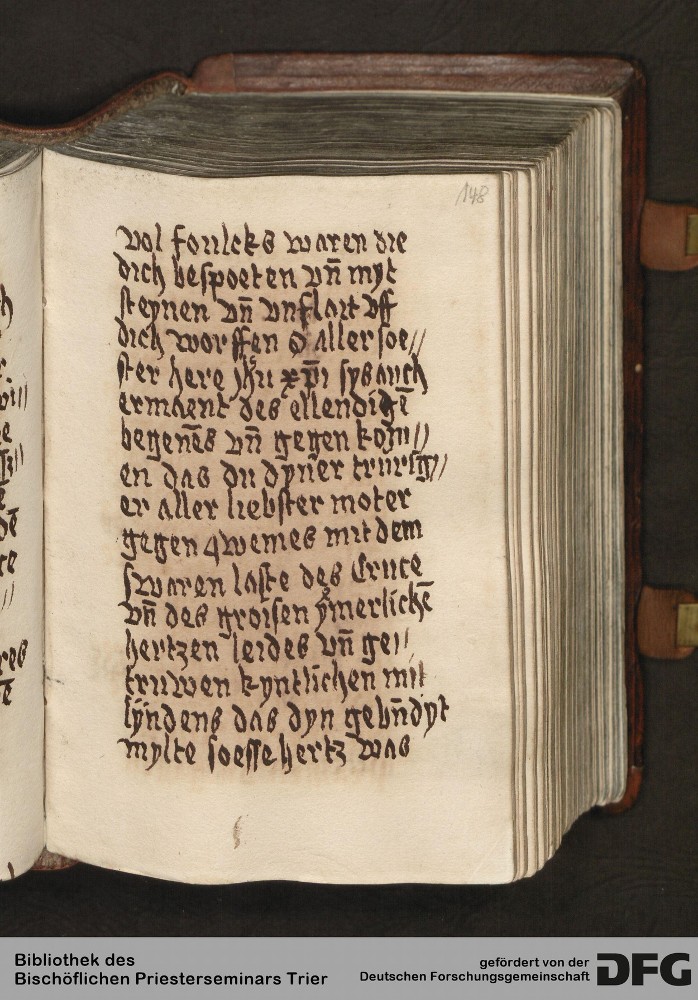 148
vol foulcks waren die
dich bespoeten vn̄ myt
steynen vn̄ vnflait vff
dich worffen O aller soe//
ster here Jhu xp̄i sys auch
ermaent des ellendigē
begenēs vn̄ gegen kom//
en das du dyner trurig//
er aller liebster moter
gegen qwemes mit dem
swaren laste des Cruce
vn̄ des groisen ÿmerlichē
hertzen leides vn̄ ge//
truwen kyntlichen mit
lÿndens das dyn
mylte soesse hertz was
Bibliothek des
Bischöflichen Priesterseminars Trier
gefördert von der
Deutschen Forschungsgemeinschaft
DFG